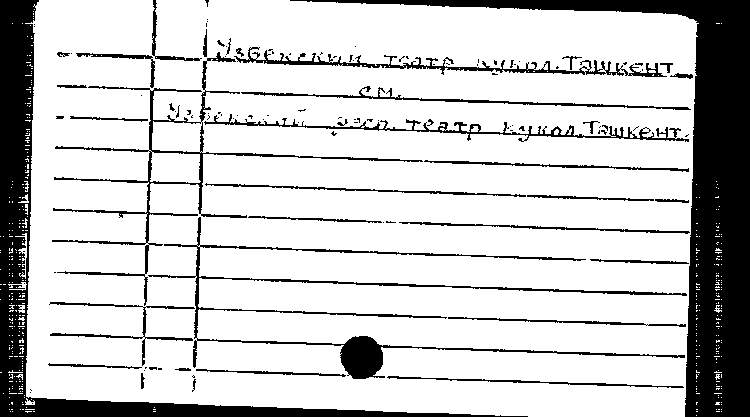 Узбекский театр кукол. Ташкент
см.
Узбекский респ. театр кукол. Ташкент.